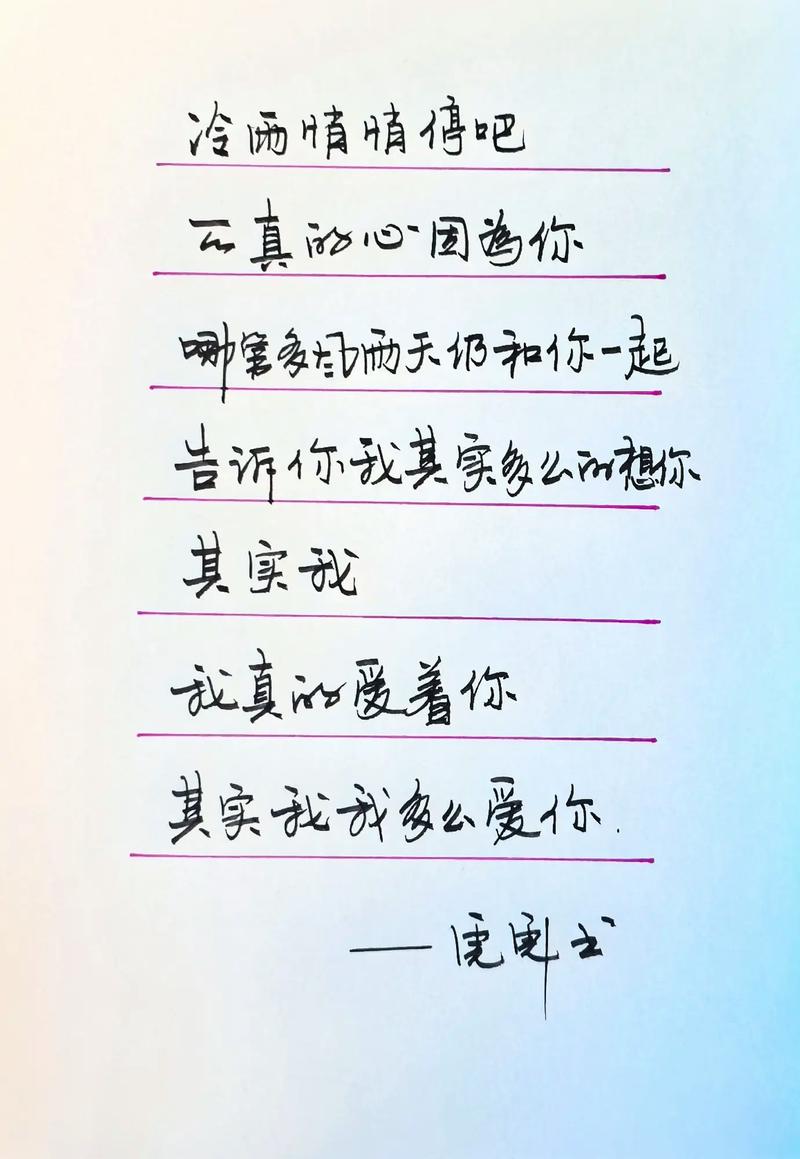 冷雨悄悄停吧
真的心因為你
哪管多风雨天仍和你一起
告诉你我其实多么的想你
其实我
我真的爱着你
其实我我多么爱你.
—— 书